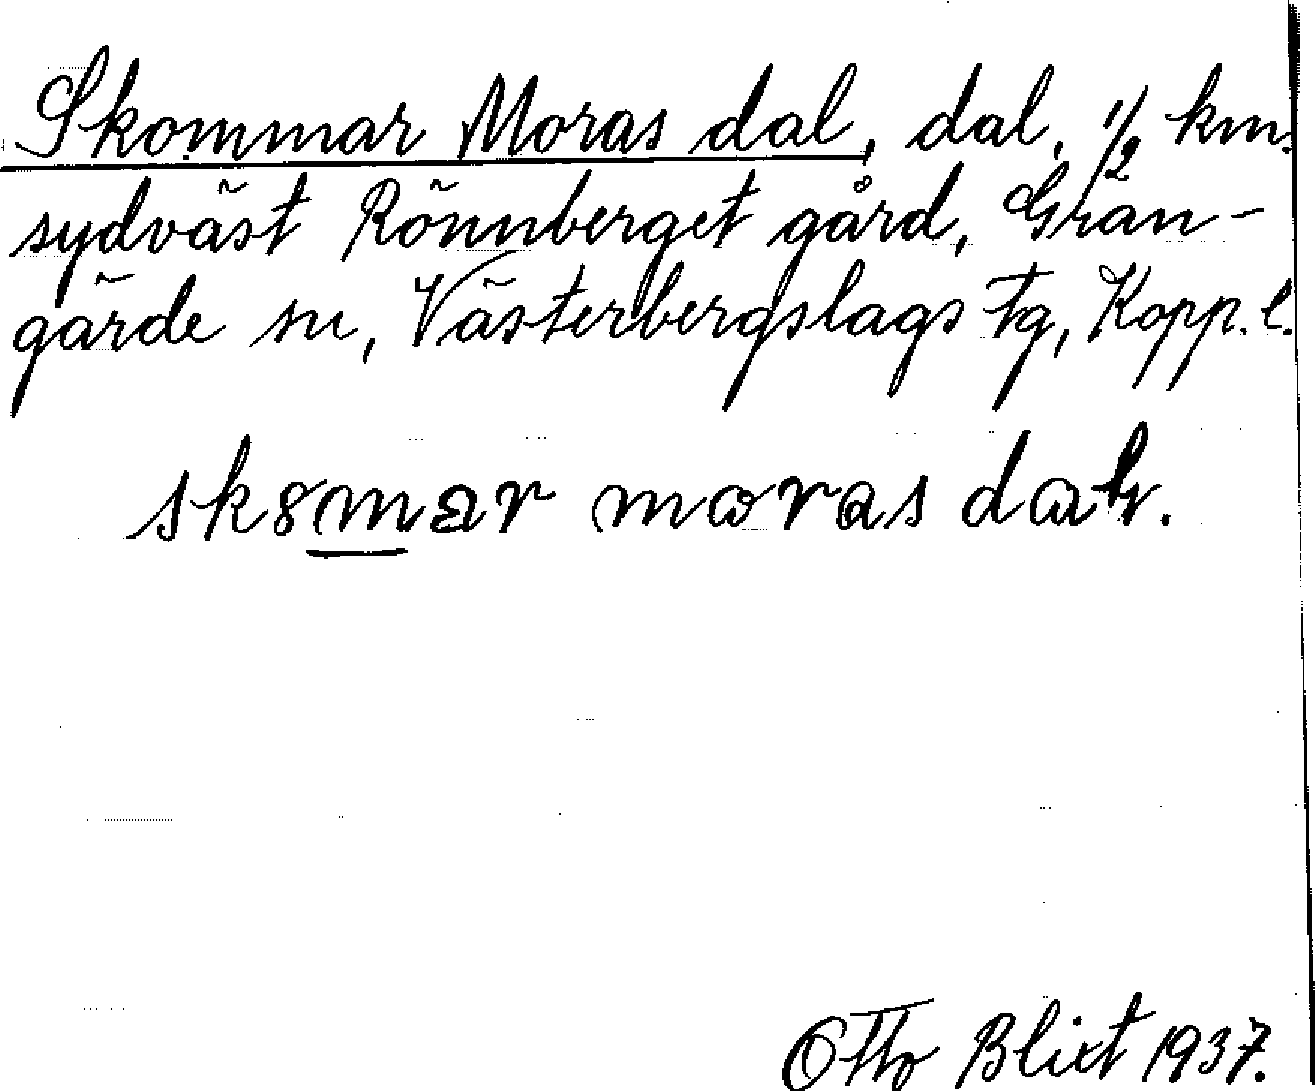 Skommar Moras dal, dal, 1/2 km.
sydväst Rönnberget gård, Gran-
gärde sn, Västerbergslags tg, Kopp. l.
sk8mar moras dał.
Otto Blixt 1937.